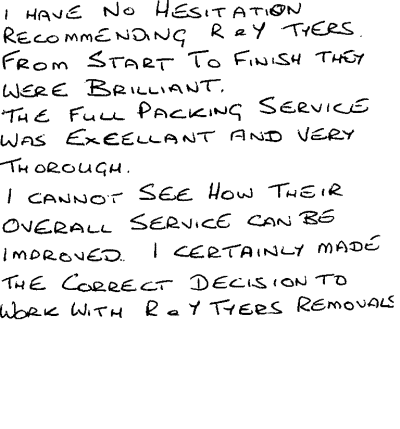 I HAVE NO HESITATION
RECOMMENDING R & Y TYERS.
FROM START TO FINISH THEY
WERE BRILLIANT.
THE FULL PACKING SERVICE
WAS EXCELLANT AND VERY
THOROUGH.
I CANNOT SEE HOW THEIR
OVERALL SERVICE CAN BE
IMPROVED. I CERTAINLY MADE
THE CORRECT DECISION TO
WORK WITH R & Y TYERS REMOVALS